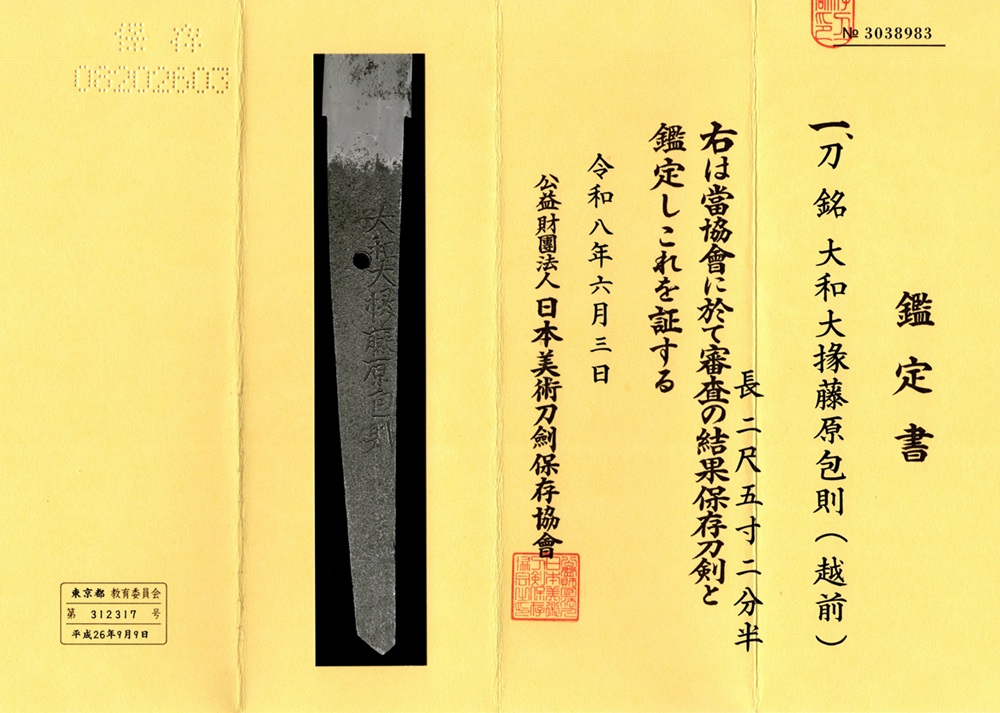 № 3038983
鑑定書
一、刀 銘 大和大掾藤原包則(越前)
長 二尺五寸二分半
右は當協會に於て審査の結果保存刀剣と
鑑定しこれを証する
令和八年六月三日
公益財團法人 日本美術刀劍保存協會
大和大掾藤原包則
保存
06202603
東京都 教育委員会
第 312317 号
平成26年9月9日